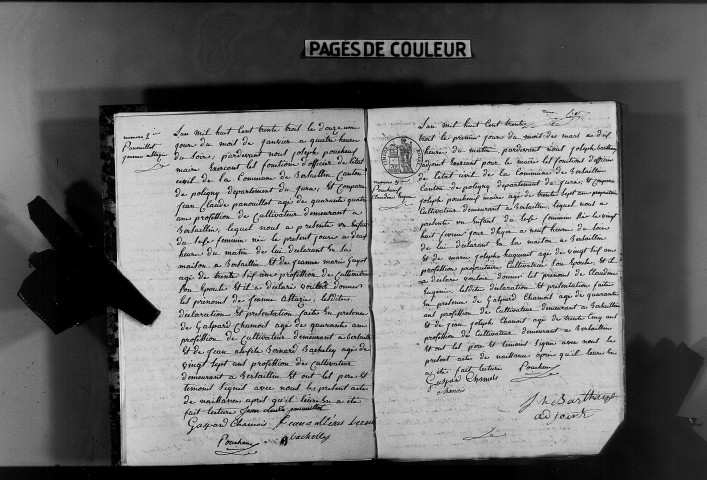 PAGES DE COULEUR
numero 2
Panouillot
jeanne altazie
L'an mil huit cent trente trois le douzieme
jour du mois de janvier a quatre heures
du soir, pardevant nous joseph poucheux
maire Exercant les fonctions d'officier de l'etat
civil de la Commune de Bersaillin Canton
de poligny departement du jura, Est Comparu
jean Claude panouillot agé de quarante quatre
ans profession de Cultivateur demeurant a
Bersaillin, lequel nous a presenté un Enfant
du Sexe femenin née le present jour a deux
heures du matin de lui declarant En sa
maison a Bersaillin Et de jeanne marie
agé de trente huit ans profession de Cultivatrice
son Epouse Et il a declaré vouloir donner
les prenoms de jeanne Altazie, lesdites
declaration Et presentation faites En presence
de Gaspard Chamois agé de quarante ans
profession de Cultivateur demeurant a Bersaillin
Et de jean Bernard Bacheley agé de
vingt sept ans profession de Cultivateur
demeurant a Bersaillin Et ont les pere Et
temoins Signés avec nous le present acte
de naissance après qu'il leur En a eté
fait lecture jean claude panouillot
Gaspard Chamois
Bachelley
Poucheux
numero 3
Poucheux
Claudine Eugenie
L'an mil huit cent trente
trois le premier jour du mois de mars a dix
heures du matin pardevant nous joseph barthelemy
adjoint Exercant pour le maire les fonctions d'officier
de l'etat civil de la Commune de Bersaillin
Canton de poligny departement du jura, Est Comparu
joseph poucheux maire agé de trente sept ans proprietaire
Cultivateur demeurant a Bersaillin, lequel nous a
presenté un Enfant du Sexe femenin née le vingt
huit fevrier jour d'hyer a neuf heures du soir
de lui declarant En sa maison a Bersaillin
Et de marie josephe huguenet agé de vingt six ans
profession proprietaire Cultivatrice son Epouse, Et il
a declaré vouloir donner les prenoms de Claudine
Eugenie lesdites declaration Et presentation faites
En presence de Gaspard Chamois agé de quarante
ans profession de Cultivateur demeurant a Bersaillin
Et de jean joseph Chamois agé de trente cinq ans
profession de Cultivateur demeurant a Bersaillin
Et ont les pere Et temoins Signés avec nous le
present acte de naissance après qu'il leur En
a eté fait lecture Poucheux
Gaspard Chamois
Chamois
adjoint